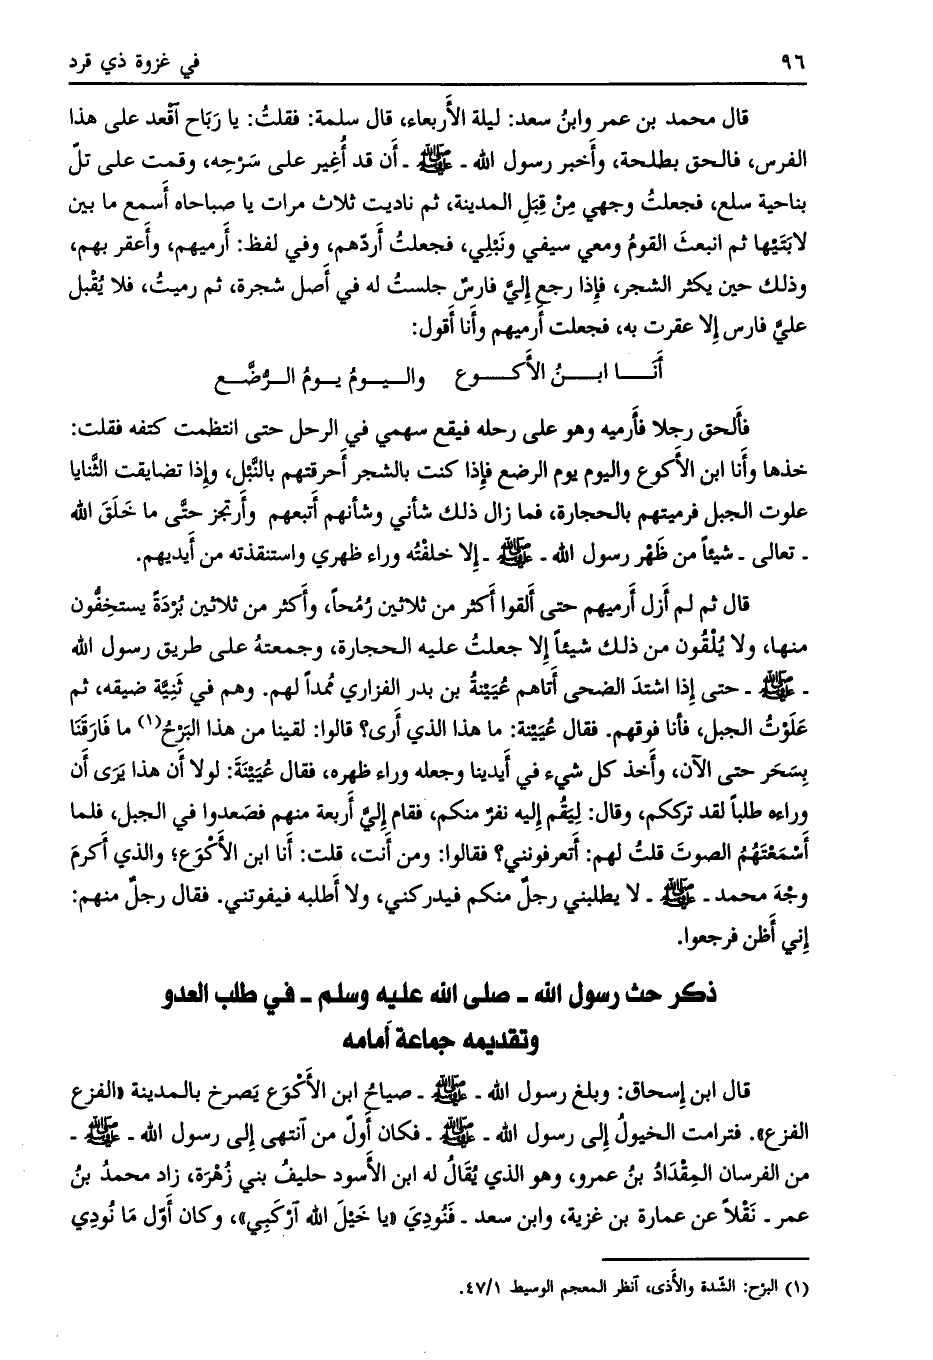 ٩٦ في غزوة ذي قرد
قال محمد بن عمر وابنُ سعد: ليلة الأَربعاء، قال سلمة: فقلتُ: يا رَبَاح آقْعد على هذا
الفرس، فالحق بطلحة، وأَخبر رسول الله - ﷺ - أَن قد أُغِير على سَرْحِه، وقمت على تلّ
بناحية سلع، فجعلتُ وجهي مِنْ قِبَلِ المدينة، ثم ناديت ثلاث مرات يا صباحاه أَسمع ما بين
لابَتَيْها ثم انبعثَ القومُ ومعي سيفي ونَبْلِي، فجعلتُ أَردّهم، وفي لفظ: أَرميهم، وأَعقر بهم،
وذلك حين يكثر الشجر، فإذا رجع إليَّ فارسٌ جلستُ له في أَصل شجرة، ثم رميتُ، فلا يُقْبل
عليَّ فارس إلا عقرت به، فجعلت أَرميهم وأَنا أَقول:
أَنَـــا ابـــنُ الأَكـــوع واليـــومُ يـــومُ الـــرُّضَّـــع
فأَلحق رجلا فأَرميه وهو على رحله فيقع سهمي في الرحل حتى انتظمت كتفه فقلت:
خذها وأَنا ابن الأَكوع واليوم يوم الرضع فإذا كنت بالشجر أَحرقتهم بالنَّبْل، وإذا تضايقت الثَّنايا
علوت الجبل فرميتهم بالحجارة، فما زال ذلك شأني وشأنهم أَتبعهم وأَرتجز حتَّى ما خَلَقَ الله
- تعالى - شيئاً من ظَهْر رسول الله - ﷺ - إلا خلفْتُه وراء ظهري واستنقذته من أَيديهم.
قال ثم لم أَزل أَرميهم حتى أَلقوا أَكثر من ثلاثين رُمْحاً، وأَكثر من ثلاثين بُرْدَةً يستخِفُّون
منها، ولا يُلْقُون من ذلك شيئاً إلا جعلتُ عليه الحجارة، وجمعتهُ على طريق رسول الله
- ﷺ - حتى إذا اشتدَ الضحى أَتاهم عُيَيْنةُ بن بدر الفزاري مُمداً لهم. وهم في ثَنِيَّة ضيقه، ثم
عَلَوْتُ الجبل، فأَنا فوقهم. فقال عُيَيْنة: ما هذا الذي أَرى؟ قالوا: لقينا من هذا البَرْحُ(١) ما فَارَقَنَا
بِسَحَر حتى الآن، وأَخذ كل شيء في أَيدينا وجعله وراء ظهره، فقال عُيَيْنَةَ: لولا أَن هذا يَرَى أَن
وراءه طلباً لقد ترككم، وقال: لِيَقُم إليه نفرٌ منكم، فقام إليَّ أَربعة منهم فصَعدوا في الجبل، فلما
أَسْمَعْتَهُمُ الصوتَ قلتُ لهم: أَتعرفونني؟ فقالوا: ومن أَنت، قلت: أَنا ابن الأَكْوَع؛ والذي أَكرمَ
وجْهَ محمد - ﷺ - لا يطلبني رجلٌ منكم فيدركني، ولا أَطلبه فيفوتني. فقال رجلٌ منهم:
إني أَظن فرجعوا.
ذكر حث رسول الله - صلى الله عليه وسلم - في طلب العدو
وتقديمه جماعة أَمامه
قال ابن إسحاق: وبلغ رسول الله - ﷺ - صياحُ ابن الأَكْوَع يَصرخ بالمدينة «الفزع
الفزع». فترامت الخيولُ إلى رسول الله - ﷺ - فكان أَولّ من آنتهى إلى رسول الله - ﷺ -
من الفرسان المِقْدَادُ بنُ عمرو، وهو الذي يُقَالُ له ابن الأَسود حليفُ بني زُهْرَة، زاد محمدُ بنُ
عمر - نَقْلاً عن عمارة بن غزية، وابن سعد - فَنُودِيَ «يا خَيْلَ الله آرْكَبِي»، وكان أَوّل مَا نُودِي
(١) البرْح: الشّدة والأَذى، آنظر المعجم الوسيط ٤٧/١.